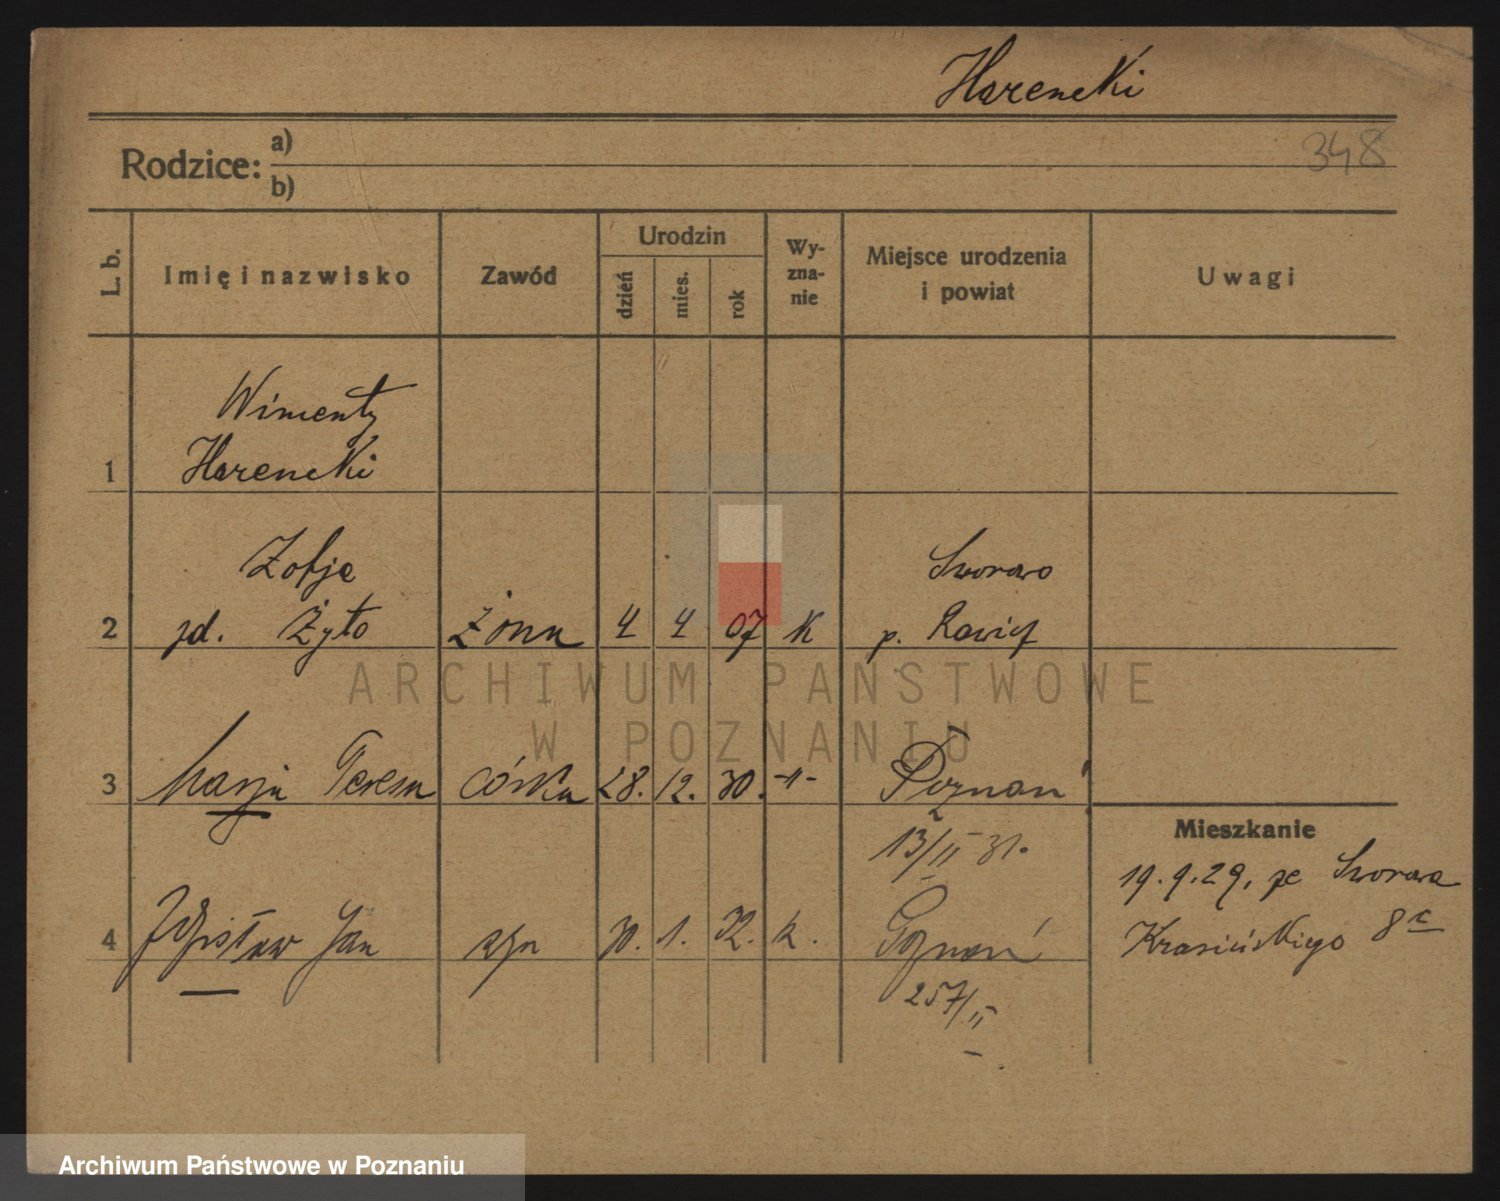 Harencki
Rodzice: a)
b)
348
L. b.
Imię i nazwisko
Zawód
Urodzin
dzień
mies.
rok
Wy-
zna-
nie
Miejsce urodzenia
i powiat
Uwagi
1
Wincenty
Harencki
2
Zofja
zd. Żyto
żona
4
4
07
K
Sworowo
p. Rawicz
3
Marja Teresa
córka
28.
12.
30.
-"-
Poznań
13/II 31.
4
Zdzisław Jan
syn
30.
1.
32.
k.
Poznań
257/II
Mieszkanie
19.9.29. ze Sworowa
Krasińskiego 8c
ARCHIWUM PAŃSTWOWE
W POZNANIU
Archiwum Państwowe w Poznaniu